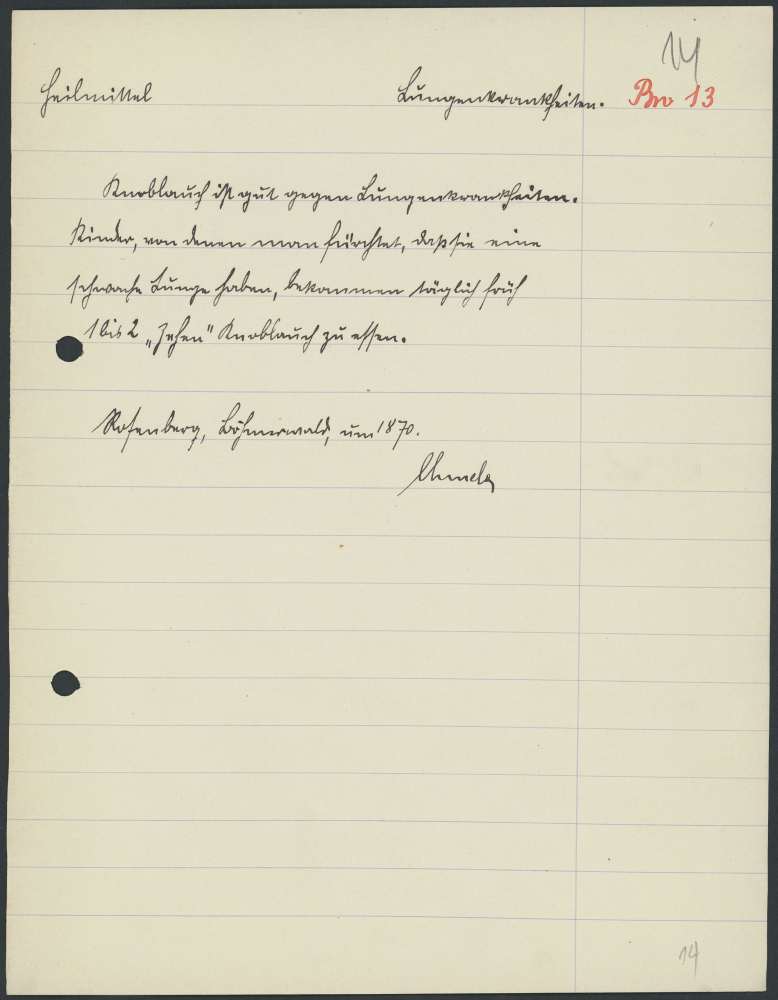 14
Heilmittel Lungenkrankheiten. Bw 13
Knoblauch ist gut gegen Lungenkrankheiten.
Kinder, von denen man fürchtet, daß sie eine
schwache Lunge haben, bekommen täglich früh
1 bis 2 „Zehen" Knoblauch zu essen.
Rosenberg, Böhmerwald, um 1870.
14